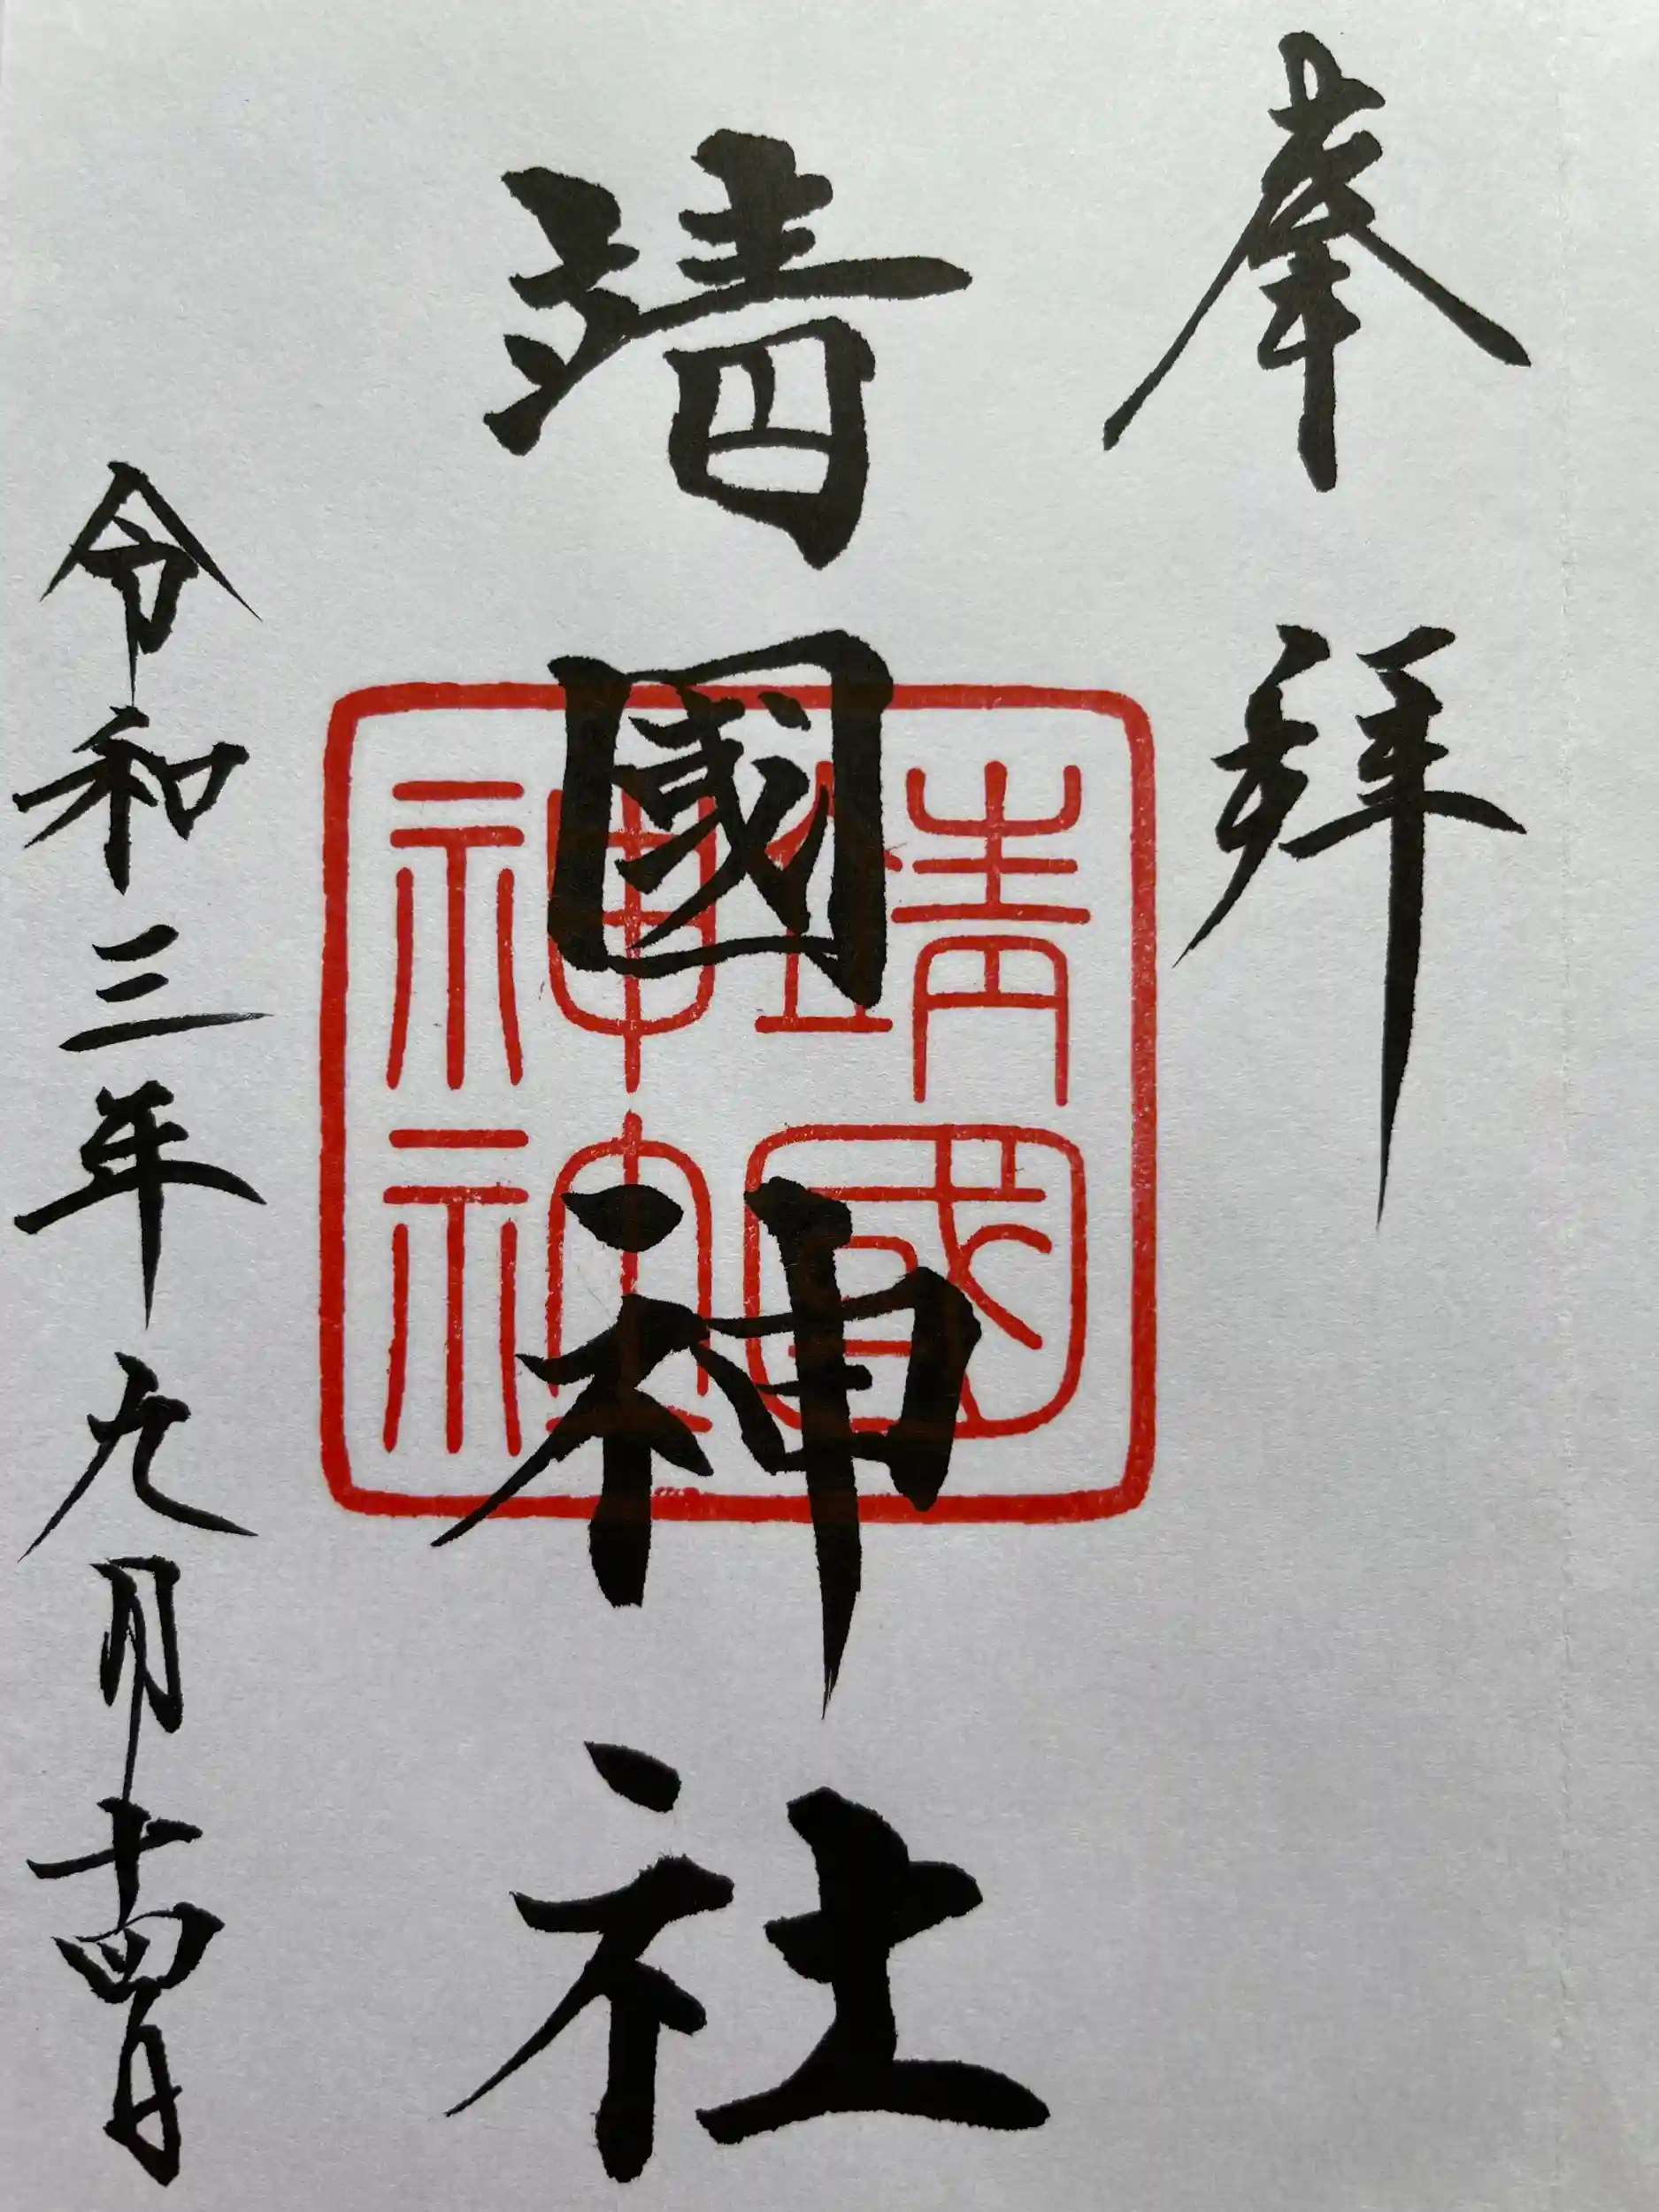 奉拝
靖國神社
令和三年九月十四日
靖國
神社